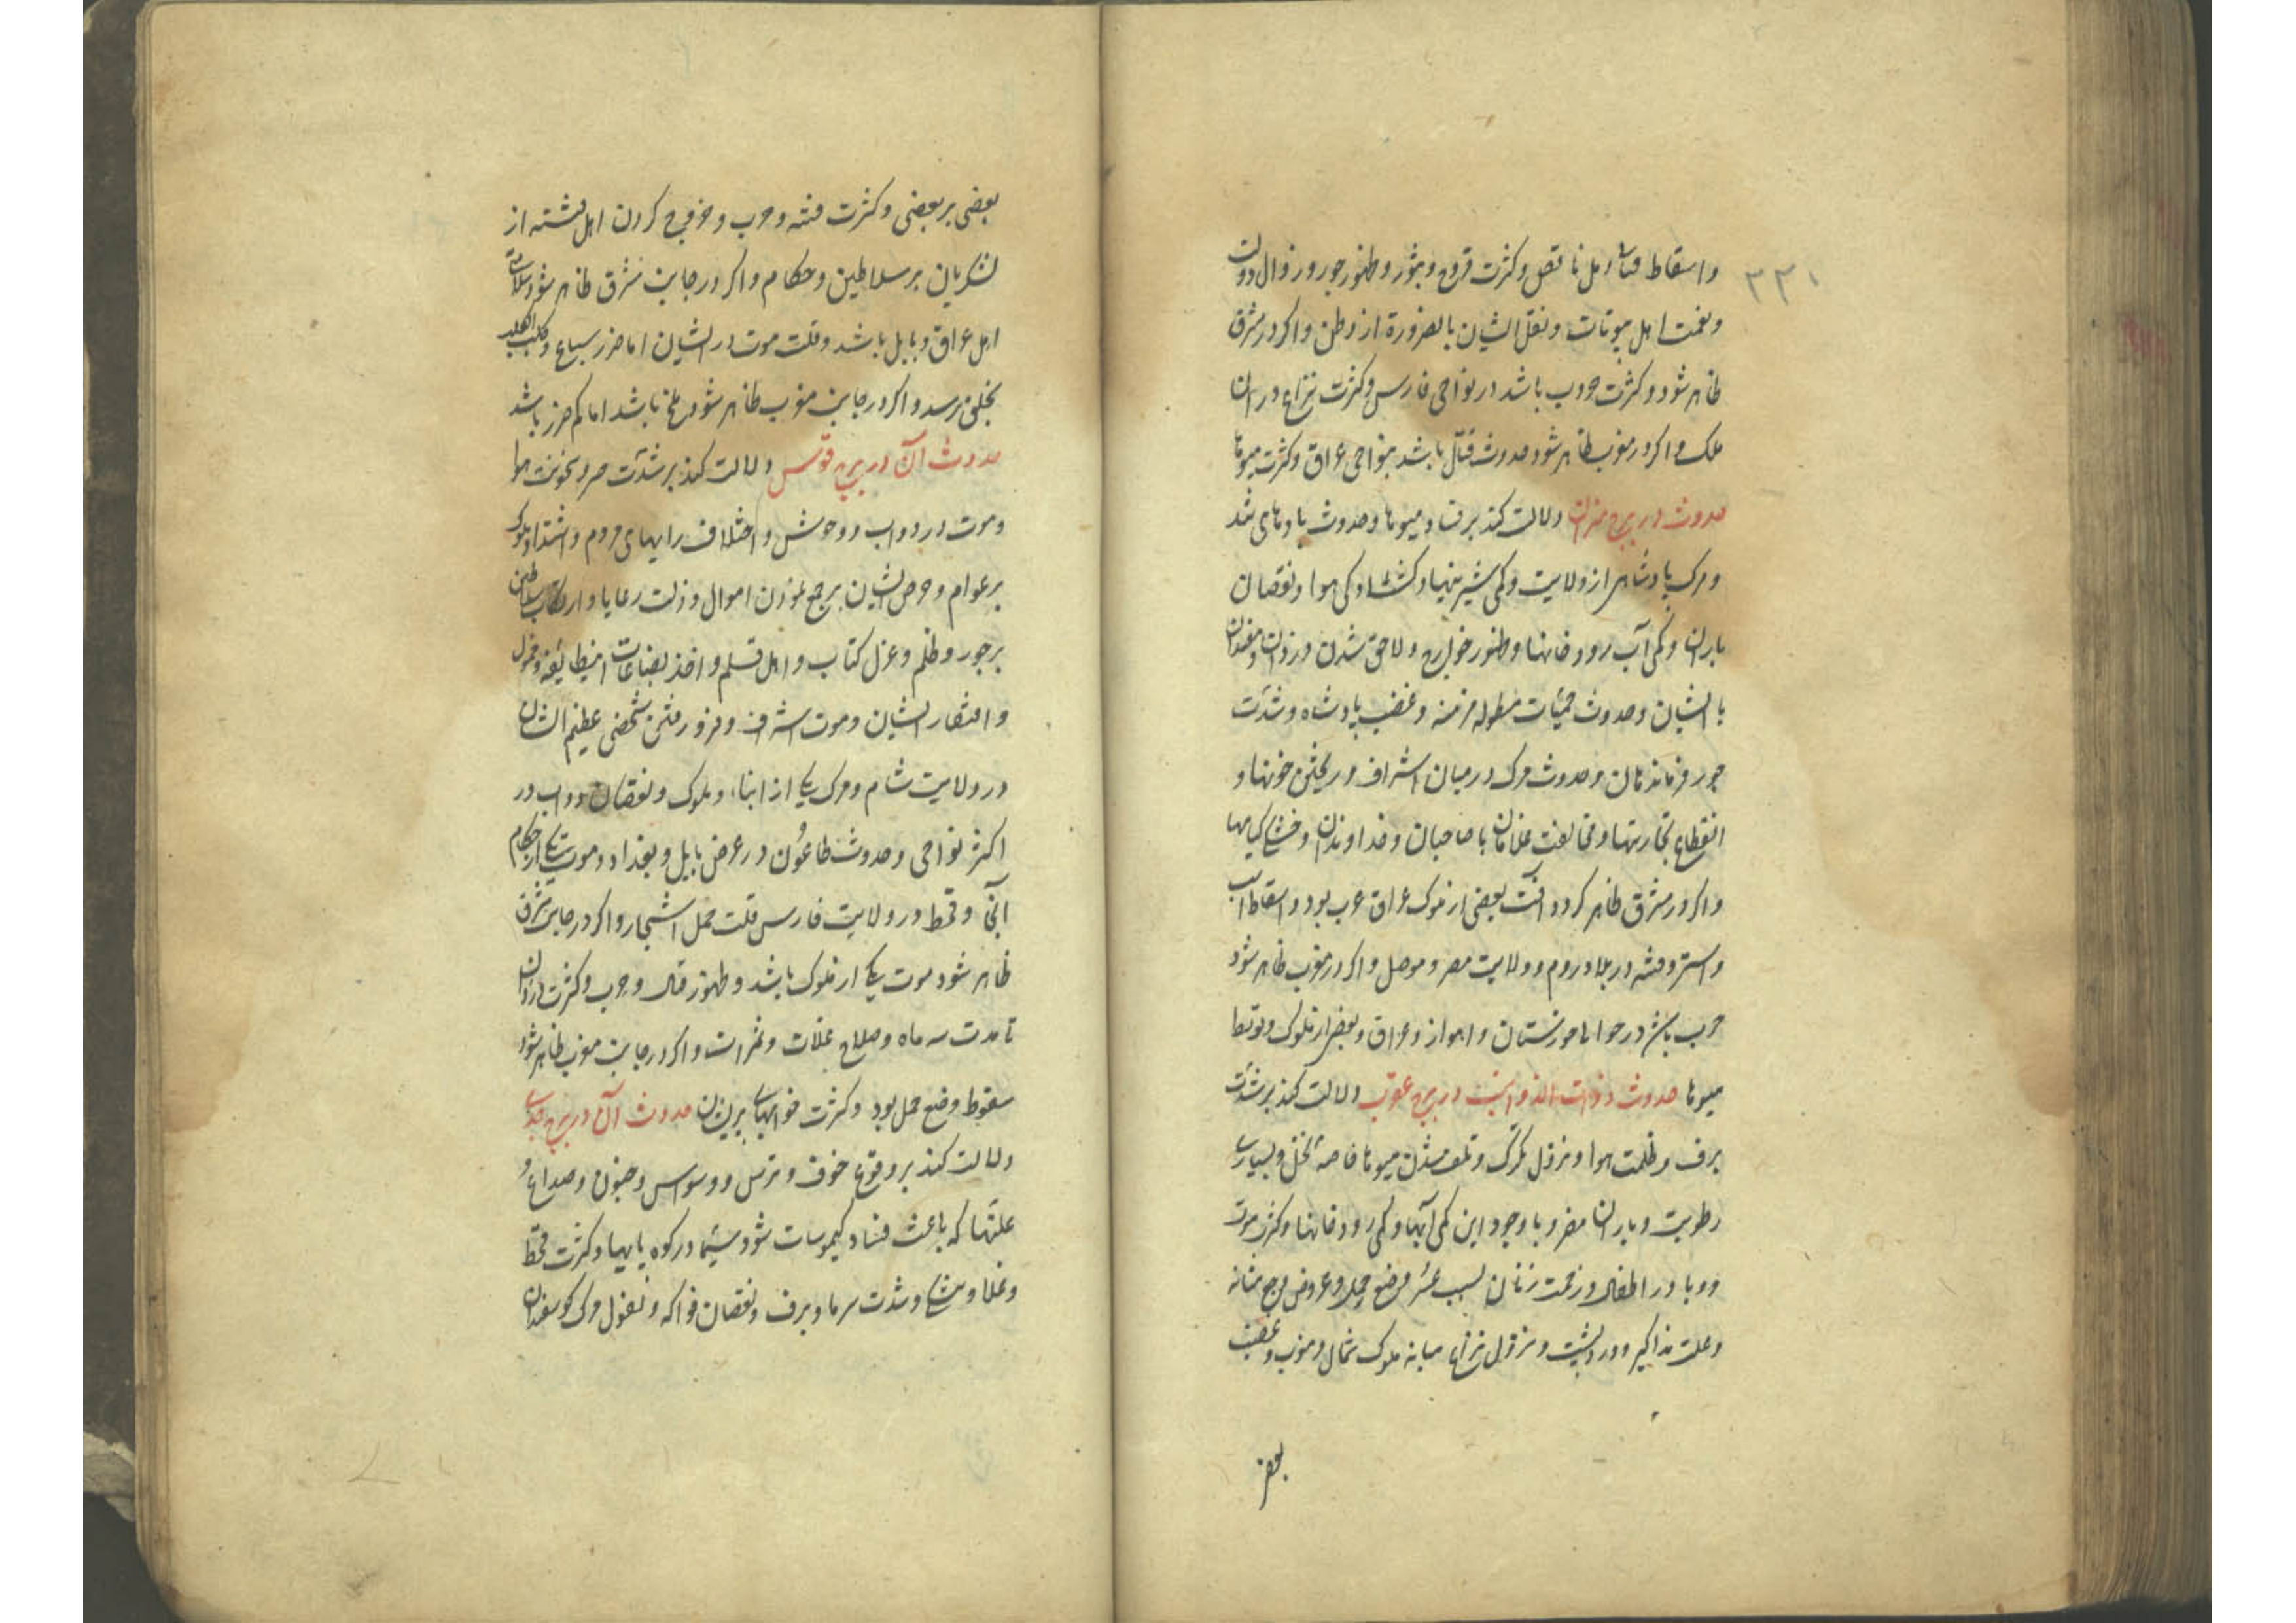 ۳۳۱
واسقاط حمل ناقص وکثرت قروح وبثور وظهور جور وزوال دولت
ونعمت اهل بیوتات ونقل ایشان بالضرورة از وطن واکر در مشرق
ظاهر شود وکثرت حروب باشد در نواحی فارس وکثرت نزاع در ان
ملک واکر در مغرب ظاهر شود حدوث قتال باشد بنواحی عراق وکثرت میوها
حدوث در برج میزان دلالت کند بر فساد میوها وحدوث بادهای تند
ومرک پادشاهی از ولایت وکمی شیرینیها و کمی هوا ونقصان
باران وکمی آب رودخانها وظهور خوارج ولاحق شدن دزدان ومفسدان
بایشان وحدوث حمیات مطوله مزمنه وغضب پادشاه وشدت
جور فرماندهان وحدوث مرک در میان اشراف وریختن خونها و
انقطاع تجارتها ومخالفت غلامان با صاحبان وخداوندان وخشکی کیاهها
واکر در مشرق ظاهر کردد آفت بعضی از ملوک عراق عرب بود واسقاط اسب
واستر وفتنه در بلاد روم وولایت مصر وموصل واکر در مغرب ظاهر شود
حرب باشد در حوالی خوزستان واهواز وعراق وبعضی از ملوک وتوسط
میوها حدوث ذوات الذوائب در برج عقرب دلالت کند بر شدت
برف وظلمت هوا ونزول تکرک وتلف شدن میوها خاصه نخل وبسیاری
رطوبت وباران مضر وبا وجود این کمی آبها وکمی رودخانها وکثرت موت
ووبا در اطفال وزحمت زنان بسبب عسر وضع حمل وعروض وجع مثانه
وعلت مذاکیر ودرد پشت ونزول نزاع میانه ملوک شمال ومغرب وغضب
بعضی
بعضی بر بعضی وکثرت فتنه وحرب وخروج کردن اهل از
لشکریان بر سلاطین وحکام واکر در جانب مشرق ظاهر شود سلامتی
اهل عراق وبابل باشد وقلت موت در ایشان اما ضرر سباع و
بخلق رسد واکر در جانب مغرب ظاهر شود ملخ باشد اما کم ضرر باشد
حدوث آن در برج قوس دلالت کند بر شدت حر وسخونت هوا
وموت در دواب ووحوش واختلاف رایهای مردم واشتداد ملوک
بر عوام وحرص ایشان بر جمع نمودن اموال وذلت رعایا وارتکاب سلاطین
بر جور وظلم وعزل کتاب واهل قلم واخذ بضاعات اینطایفه و
وافتقار ایشان وموت اشراف وفرو رفتن شخصی عظیم الشان
در ولایت شام ومرک یکی از ابناء وملوک ونقصان دواب در
اکثر نواحی وحدوث طاعون در عرض بابل وبغداد وموت یکی از حکام
آنجا وقحط در ولایت فارس قلت حمل اشجار واکر در جانب مشرق
ظاهر شود موت یکی از ملوک باشد وظهور قتال وحرب وکثرت دزدان
تا مدت سه ماه وصلاح غلات وثمرات واکر در جانب مغرب ظاهر شود
سقوط وضع حمل بود وکثرت خوابهای پریشان حدوث آن در برج جدی
دلالت کند بر وقوع خوف وترس ووسواس وجنون وصداع و
علتها که باعث فساد کیموسات شود سیما در کوه پایها وکثرت قحط
وغلا و وشدت سرما وبرف ونقصان فواکه وبقول ومرک کوسفندان